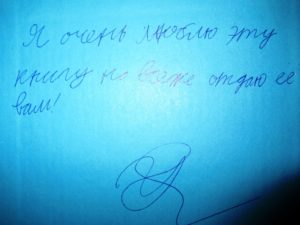 Я очень люблю эту
книгу но даже отдаю ее
вам!